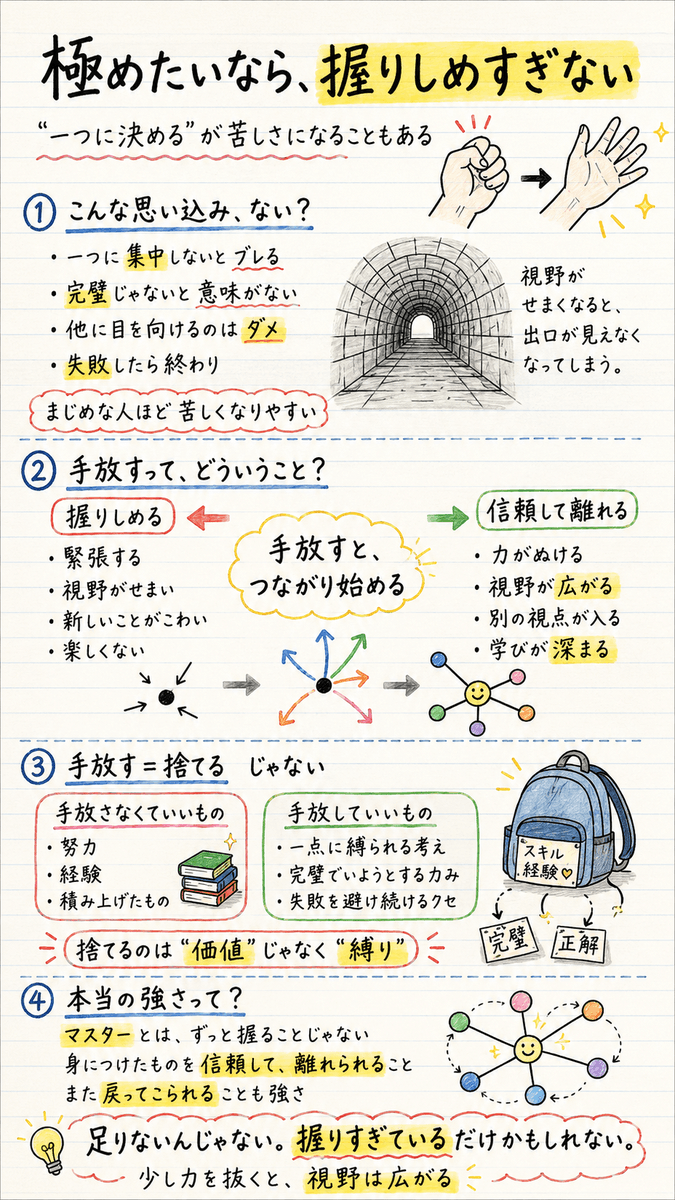 極めたいなら、握りしめすぎない
“一つに決める”が苦しさになることもある
① こんな思い込み、ない？
・一つに集中しないとブレる
・完璧じゃないと意味がない
・他に目を向けるのはダメ
・失敗したら終わり
まじめな人ほど苦しくなりやすい
視野が
せまくなると、
出口が見えなく
なってしまう。
② 手放すって、どういうこと？
握りしめる
・緊張する
・視野がせまい
・新しいことがこわい
・楽しくない
手放すと、
つながり始める
信頼して離れる
・力がぬける
・視野が広がる
・別の視点が入る
・学びが深まる
③ 手放す＝捨てる じゃない
手放さなくていいもの
・努力
・経験
・積み上げたもの
手放していいもの
・一点に縛られる考え
・完璧でいようとする力み
・失敗を避け続けるクセ
スキル
経験♡
完璧
正解
捨てるのは“価値”じゃなく“縛り”
④ 本当の強さって？
マスターとは、ずっと握ることじゃない
身につけたものを信頼して、離れられること
また戻ってこられることも強さ
足りないんじゃない。握りすぎているだけかもしれない。
少し力を抜くと、視野は広がる